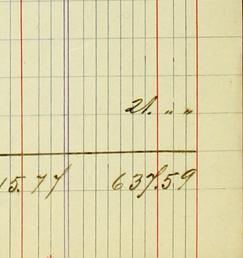 21. " "
15.77 637.59